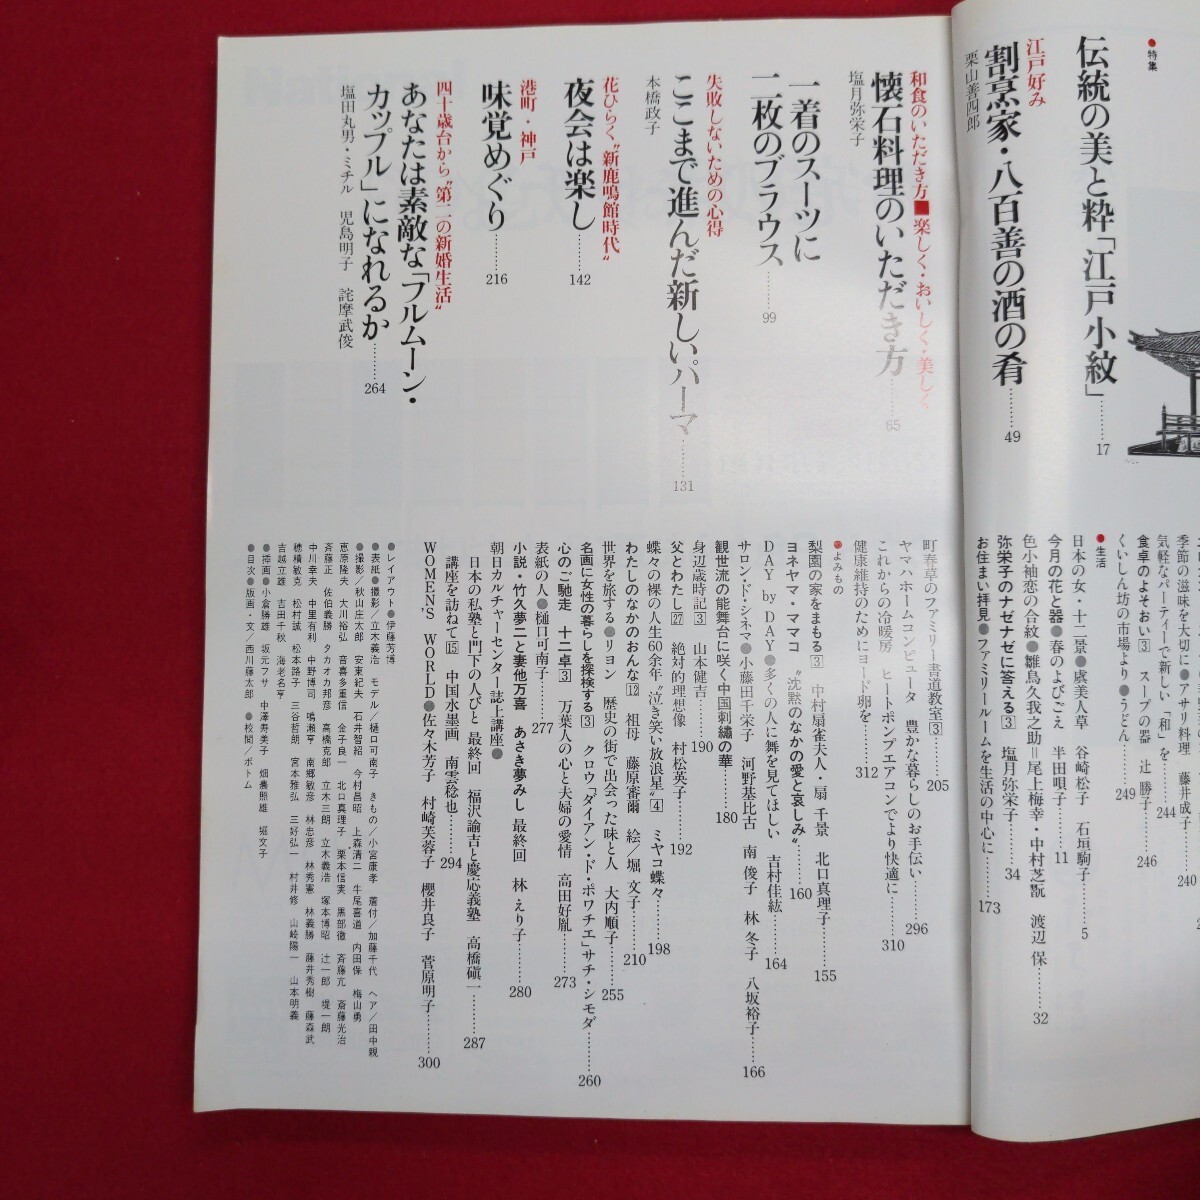 ●特集
伝統の美と粋「江戸小紋」……17
江戸好み
割烹家・八百善の酒の肴……49
栗山善四郎
和食のいただき方■楽しく・おいしく・美しく
懐石料理のいただき方……65
塩月弥栄子
一着のスーツに
二枚のブラウス……99
失敗しないための心得
ここまで進んだ新しいパーマ……131
本橋政子
花ひらく“新鹿鳴館時代”
夜会は楽し……142
港町・神戸
味覚めぐり……216
四十歳台から“第二の新婚生活”
あなたは素敵な「フルムーン・
カップル」になれるか……264
塩田丸男・ミチル　児島明子　詫摩武俊
季節の滋味を大切に●アサリ料理　藤井成子……240
気軽なパーティーで新しい「和」を……244
食卓のよそおい3　スープの器　辻　勝子……246
くいしん坊の市場より●うどん……249
●生活
日本の女・十二景●虞美人草　谷崎松子　石垣駒子……5
今月の花と器●春のよびごえ　半田唄子……11
色小袖恋の合紋●雛鳥久我之助＝尾上梅幸・中村芝翫　渡辺　保……32
弥栄子のナゼナゼに答える3　塩月弥栄子……34
お住まい拝見●ファミリールームを生活の中心に……173
町春草のファミリー書道教室3……205
ヤマハホームコンピュータ　豊かな暮らしのお手伝い……296
これからの冷暖房　ヒートポンプエアコンでより快適に……310
健康維持のためにヨード卵を……312
●よみもの
梨園の家をまもる3　中村扇雀夫人・扇　千景　北口真理子……155
ヨネヤマ・ママコ　“沈黙のなかの愛と哀しみ”……160
DAY by DAY●多くの人に舞を見てほしい　吉村佳紘……164
サロン・ド・シネマ●小藤田千栄子　河野基比古　南　俊子　林　冬子　八坂裕子……166
観世流の能舞台に咲く中国刺繡の華……180
身辺歳時記3　山本健吉……190
父とわたし27　絶対的理想像　村松英子……192
蝶々の裸の人生60余年“泣き笑い放浪星”4　ミヤコ蝶々……198
わたしのなかのおんな12　祖母　藤原審爾　絵／堀　文子……210
世界を旅する●リヨン　歴史の街で出会った味と人　大内順子……255
名画に女性の暮らしを探検する3　クロウ「ダイアン・ド・ポワチエ」サチ・シモダ……260
心のご馳走　十二卓3　万葉人の心と夫婦の愛情　高田好胤……273
表紙の人●樋口可南子……277
小説・竹久夢二と妻他万喜　あさき夢みし　最終回　林　えり子……280
朝日カルチャーセンター誌上講座●
日本の私塾と門下の人びと　最終回　福沢諭吉と慶応義塾　高橋磌一……287
講座を訪ねて15　中国水墨画　南雲稔也……294
WOMEN'S WORLD●佐々木芳子　村崎芙蓉子　櫻井良子　菅原明子……300
●レイアウト●伊藤芳博
●表紙●撮影／立木義浩　モデル／樋口可南子　きもの／小宮康孝　着付／加藤千代　ヘア／田中親
●撮影／秋山庄太郎　安東紀夫　石井智紹　今村昌昭　上森清二　牛尾喜道　内田保　梅山勇
恵原隆夫　大川裕弘　音喜多重信　金子良一　北口真理子　栗本信実　黒部徹　斉藤亢　斎藤光治
斉藤正　佐伯義勝　タカオカ邦彦　高橋克郎　立木三朗　立木義浩　塚本博昭　辻一郎　堤一朗
中川幸夫　中里有利　中野博司　鳴瀬亨　南郷敏彦　林忠彦　林秀憲　林義勝　藤井秀樹　藤森武
穂積敏克　松村誠　松本路子　三谷哲朗　宮本雅弘　三好弘一　村井修　山崎陽一　山本明義
吉越立雄　吉田千秋　海老名亨
●挿画●小倉勝雄　坂元フサ　中澤寿美子　畑農照雄　堀文子
●目次●版画・文／西川藤太郎　●校閲／ボトム